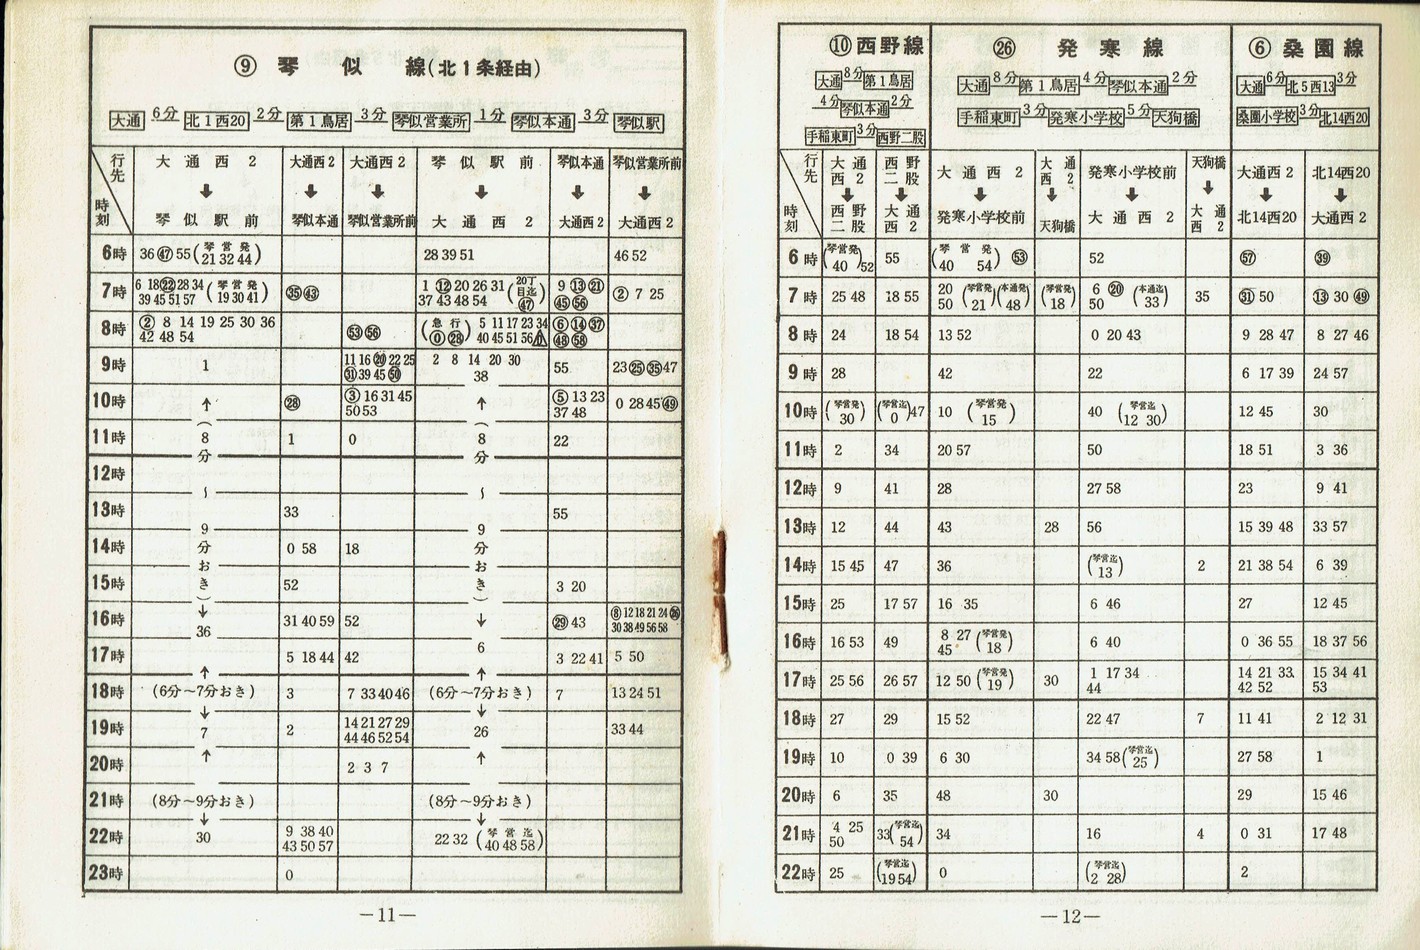 ⑨ 琴似線(北1条経由)
大通 6分 北1西20 2分 第1鳥居 3分 琴似営業所 1分 琴似本通 3分 琴似駅
行先 時刻 大通西2 ↓ 琴似駅前 大通西2 ↓ 琴似本通 大通西2 ↓ 琴似営業所前 琴似駅前 ↓ 大通西2 琴似本通 ↓ 大通西2 琴似営業所前 ↓ 大通西2
6時 36 ㊼ 55 (琴営発 21 32 44) 28 39 51 46 52
7時 6 18 ㉒ 28 34 39 45 51 57 (琴営発 19 30 41) ㉟ ㊸ 1 ⑫ 20 26 31 37 43 48 54 (20丁目迄 ㊼) 9 ⑬ ㉑ ㊺ 56 ② 7 25
8時 ② 8 14 19 25 30 36 42 48 54 53 56 (急行 ⓪ ㉘) 5 11 17 23 34 40 45 51 56 ⑥ ⑭ ㊲ ㊽ 58
9時 1 11 16 ⑳ 22 25 ㉛ 39 45 ㊿ 2 8 14 20 30 38 55 23 ㉕ ㉟ 47
10時 ↑ ㉘ ③ 16 31 45 50 53 ↑ ⑤ 13 23 37 48 0 28 45 ㊾
11時 (8分 1 0 (8分 22
12時 〜 〜
13時 9 33 9 55
14時 分 0 58 18 分
15時 おき) 52 おき) 3 20
16時 ↓ 36 31 40 59 52 ↓ ㉙ 43 ⑧ 12 18 21 24 ㉖ 30 38 49 56 58
17時 ↑ 5 18 44 42 6 ↑ 3 22 41 5 50
18時 (6分〜7分おき) 3 7 33 40 46 (6分〜7分おき) 7 13 24 51
19時 ↓ 7 2 14 21 27 29 44 46 52 54 ↓ 26 33 44
20時 ↑ 2 3 7 ↑
21時 (8分〜9分おき) (8分〜9分おき)
22時 ↓ 30 9 38 40 43 50 57 ↓ 22 32 (琴営迄 40 48 58)
23時 0
—11—
⑩ 西野線
大通 8分 第1鳥居
4分 琴似本通 2分
手稲東町 3分 西野二股
㉖ 発寒線
大通 8分 第1鳥居 4分 琴似本通 2分
手稲東町 3分 発寒小学校 5分 天狗橋
⑥ 桑園線
大通 6分 北5西13 3分
桑園小学校 3分 北14西20
行先 時刻 大通西2 ↓ 西野二股 西野二股 ↓ 大通西2 大通西2 ↓ 発寒小学校前 大通西2 ↓ 天狗橋 発寒小学校前 ↓ 大通西2 天狗橋 ↓ 大通西2 大通西2 ↓ 北14西20 北14西20 ↓ 大通西2
6時 (琴営発 40) 52 55 (琴営発 40 54) 53 52 57 ㊴
7時 25 48 18 55 20 50 (琴営発 21) (本通発 48) (琴営発 18) 6 ⑳ 50 (本通迄 33) 35 ㉛ 50 ⑬ 30 ㊾
8時 24 18 54 13 52 0 20 43 9 28 47 8 27 46
9時 28 42 22 6 17 39 24 57
10時 (琴営発 30) (琴営迄 0) 47 10 (琴営発 15) 40 (琴営迄 12 30) 12 45 30
11時 2 34 20 57 50 18 51 3 36
12時 9 41 28 27 58 23 9 41
13時 12 44 43 28 56 15 39 48 33 57
14時 15 45 47 36 (琴営迄 13) 2 21 38 54 6 39
15時 25 17 57 16 35 6 46 27 12 45
16時 16 53 49 8 27 45 (琴営発 18) 6 40 0 36 55 18 37 56
17時 25 56 26 57 12 50 (琴営発 19) 30 1 17 34 44 14 21 33 42 52 15 34 41 53
18時 27 29 15 52 22 47 7 11 41 2 12 31
19時 10 0 39 6 30 34 58 (琴営迄 25) 27 58 1
20時 6 35 48 30 29 15 46
21時 4 25 50 33 (琴営迄 54) 34 16 4 0 31 17 48
22時 25 (琴営迄 19 54) 0 (琴営迄 2 28) 2
—12—